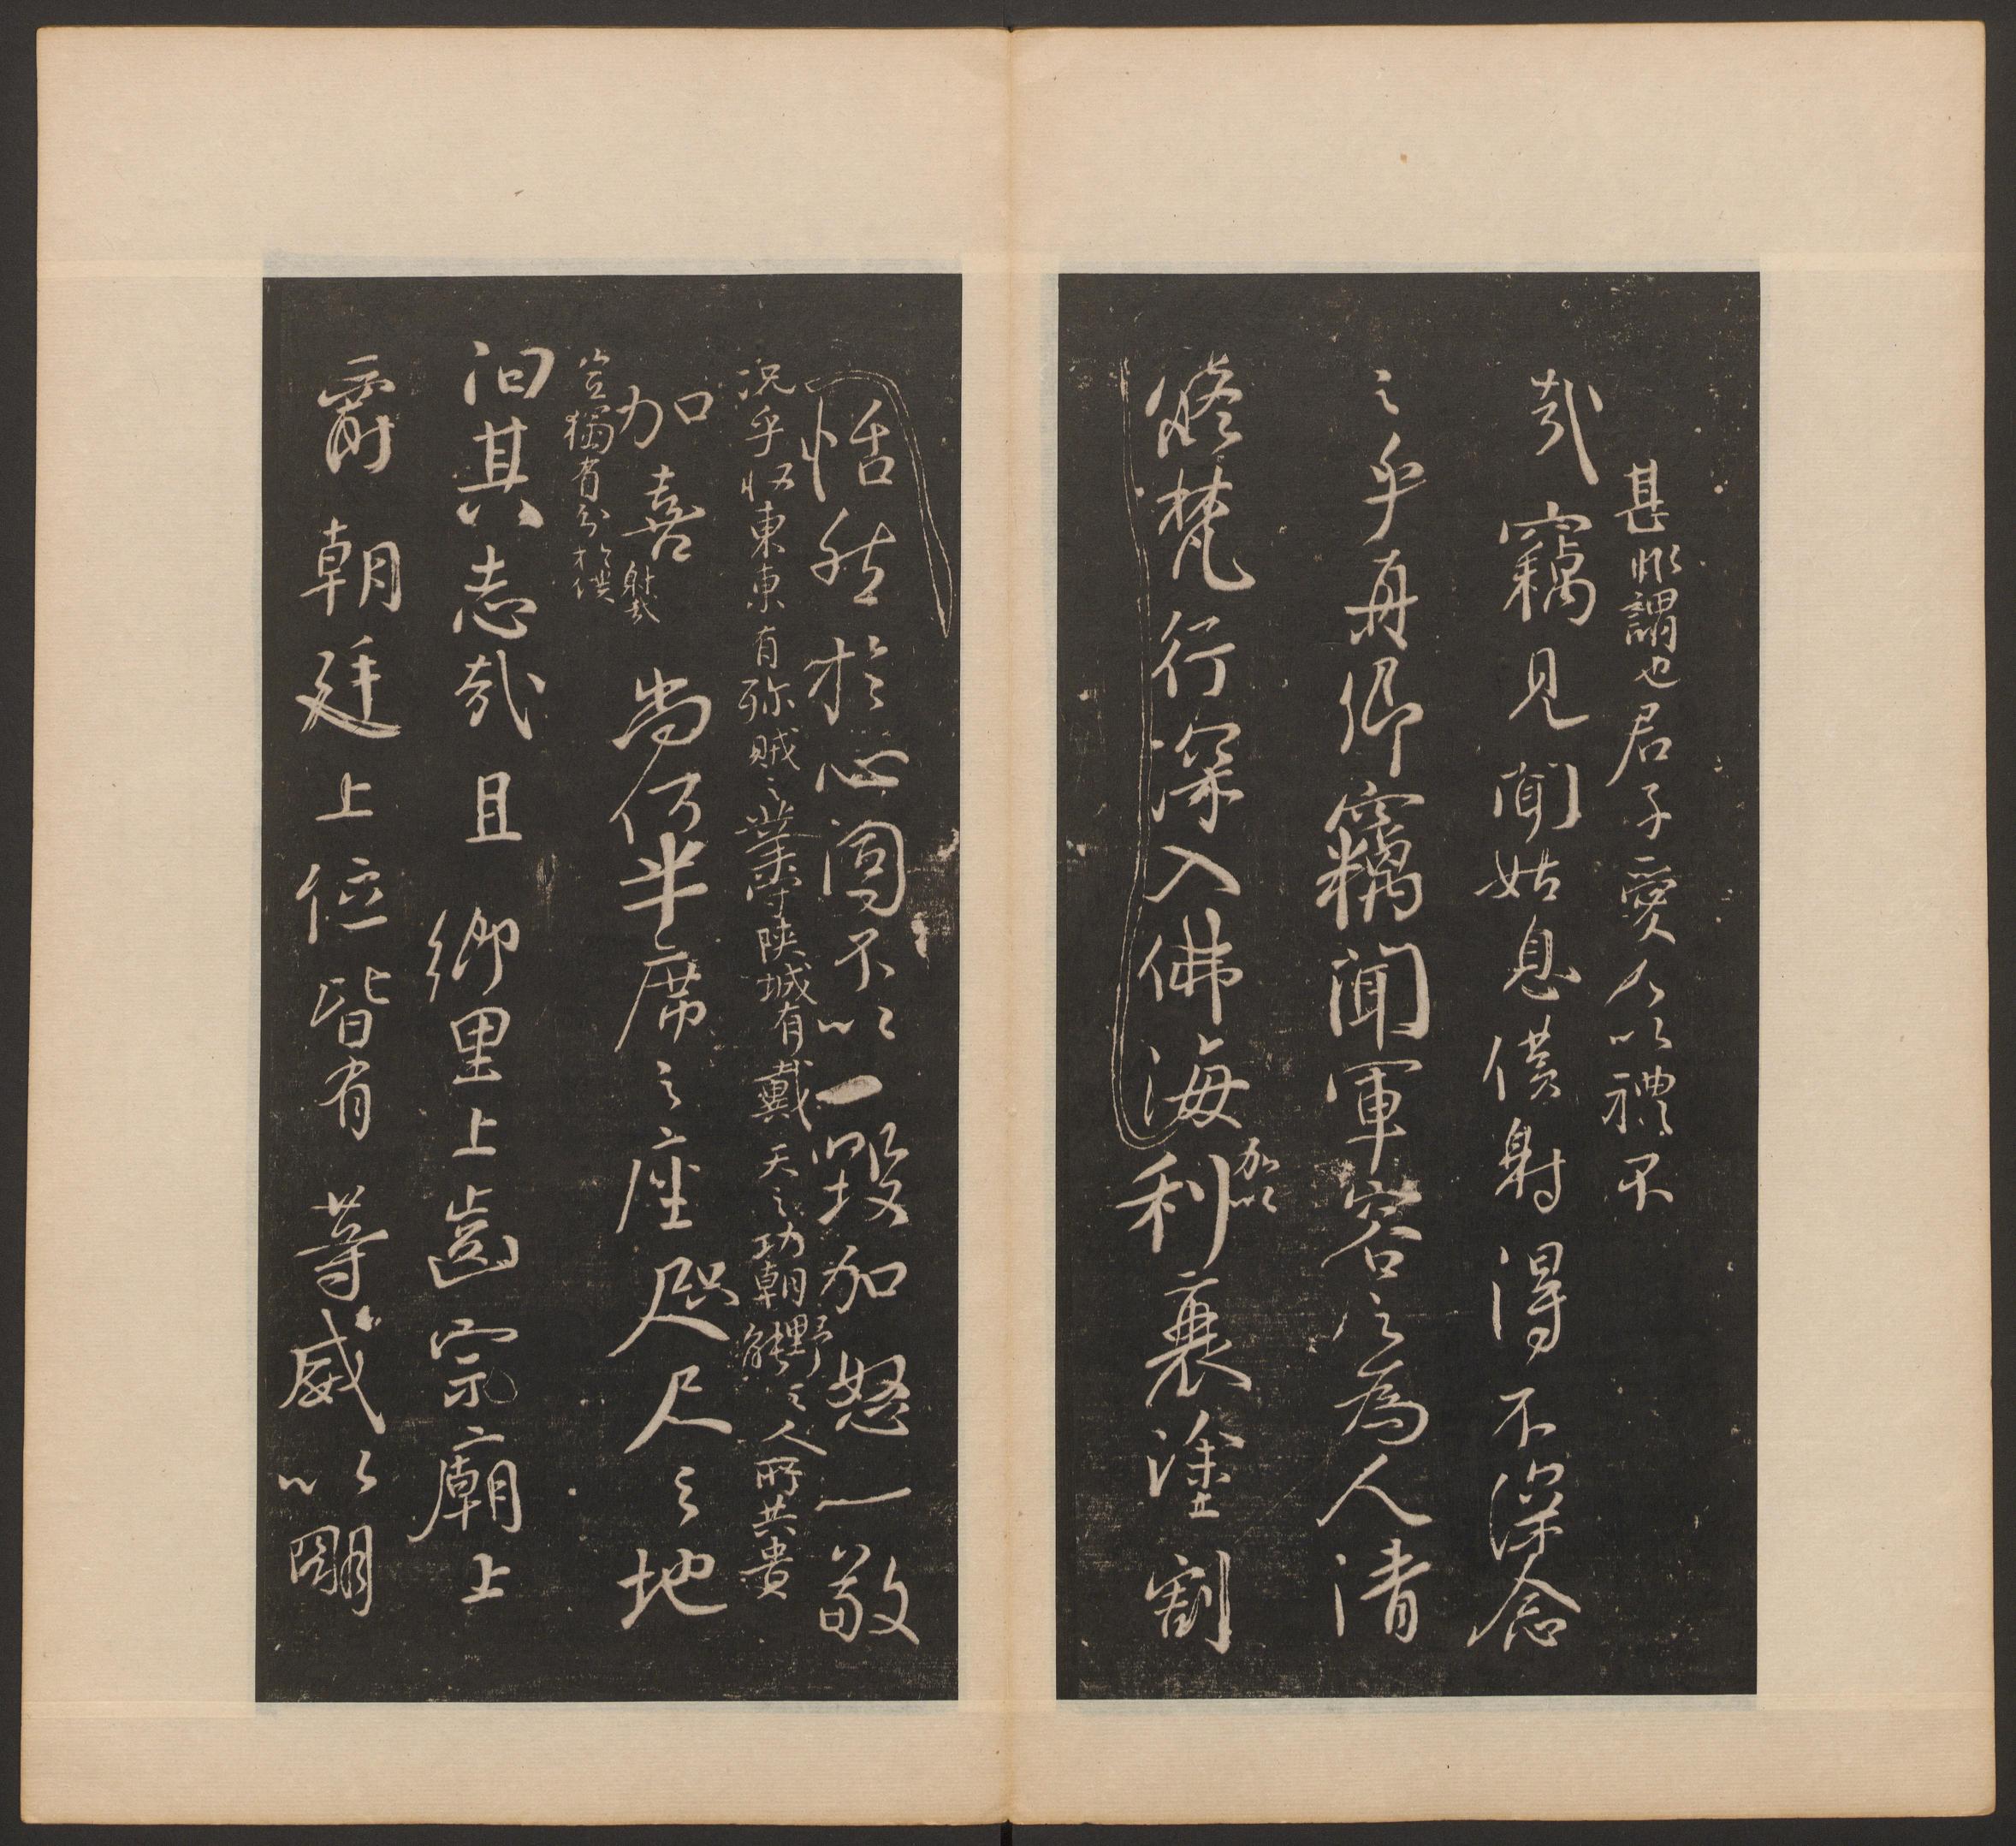 甚非謂也君子愛人以禮不
哉竊見聞姑息僕射得不深念
之乎再卿竊聞軍容之為人清
修梵行深入佛海
加以
利衰塗割
恬然於心固不以一毀加怒一敬
況乎收東京有殄賊之業守陝城有戴天之功朝野之人所共貴
加喜
尚何半席之座咫尺之地
豈獨有分於僕
射哉
汨其志哉且鄉里上齒宗廟上
爵朝廷上位皆有等威以明